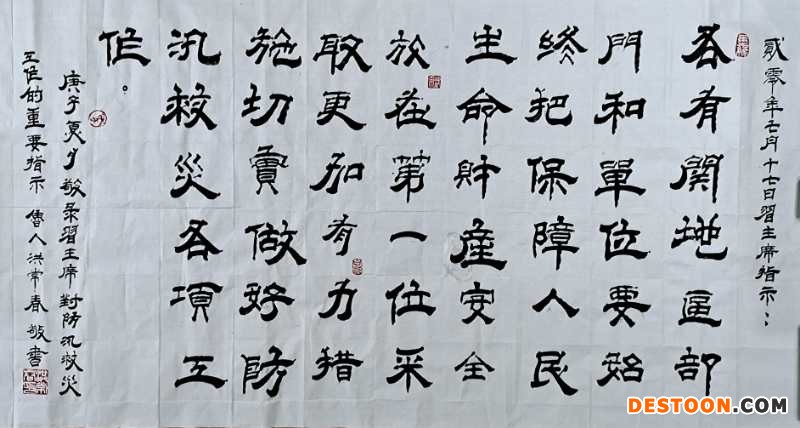 貳零年七月十七日習主席指示：
各有関地區部
門和單位要始
終把保障人民
生命財產安全
放在第一位采
取更加有力措
施切實做好防
汛救災各項工
作。
庚子夏月敬录習主席對防汛救災
工作的重要指示 魯人洪常春敬書
DESTOON.COM